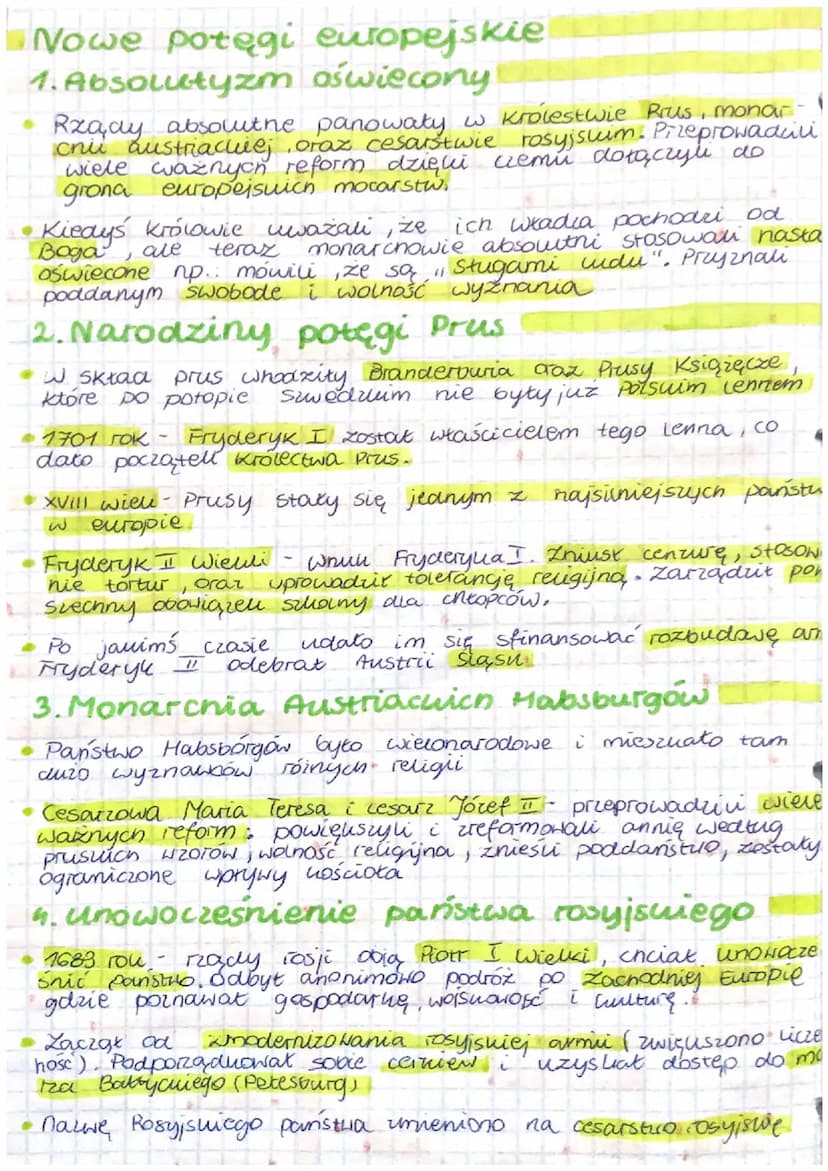 Nowe potęgi europejskie
1. Absolutyzm oświecony
• Rządy absolutne panowały w Królestwie Prus, monar-
chii austriackiej, oraz cesarstwie rosyjskim. Przeprowadzili
wiele ważnych reform dzięki czemu dołączyli do
grona europejskich mocarstw.
• Kiedyś królowie uważali, że ich władza pochodzi od
Boga, ale teraz monarchowie absolutni stosowali hasła
oświecone np.: mówili, że są "sługami ludu". Przyznali
poddanym swobodę i wolność wyznania
2. Narodziny potęgi Prus
• W skład prus whodziły Branderburia oraz Prusy Książęce,
które po potopie szwedzkim nie były już Polskim lennem
• 1701 rok - Fryderyk I został właścicielem tego lenna, co
dało początek Królectwa Prus.
• XVIII wiek - Prusy stały się jednym z najsilniejszych państw
w europie.
• Fryderyk II Wielki - wnuk Fryderyka I. Zniusł cenzurę, stosow
nie tortur, oraz wprowadził tolerancję religijną. Zarządził pow
szechny obowiązek szkolny dla chłopców.
• Po jakimś czasie udało im się sfinansować rozbudawę ar
Fryderyk II odebrał Austrii Śląsk.
3. Monarchia Austriackich Habsburgów
• Państwo Habsbórgów było wielonarodowe i mieszkało tam
dużo wyznawców różnych religii
• Cesarzowa Maria Teresa i cesarz Józef II - przeprowadzili wiele
ważnych reform: powiększyli i zreformowali armię według
pruskich wzorów, wolność religijna, znieśli poddaństwo, zostały
ograniczone wpływy kościoła
4. Unowocześnienie państwa rosyjskiego
• 1689 rok - rządy rosji objął Piotr I Wielki, chciał unowocze
śnić państwo. Odbył anonimowo podróż po Zachodniej Europie
gdzie poznawał gospodarkę, wojskowość i kulturę.
• Zaczął od zmodernizowania rosyjskiej armii (zwiększono licze
ność). Podporządkował sobie cerkiew i uzyskał dostęp do mo
rza Bałtyckiego (Petesburg)
• Nazwę Rosyjskiego państwa zmieniono na cesarstwo rosyjskie